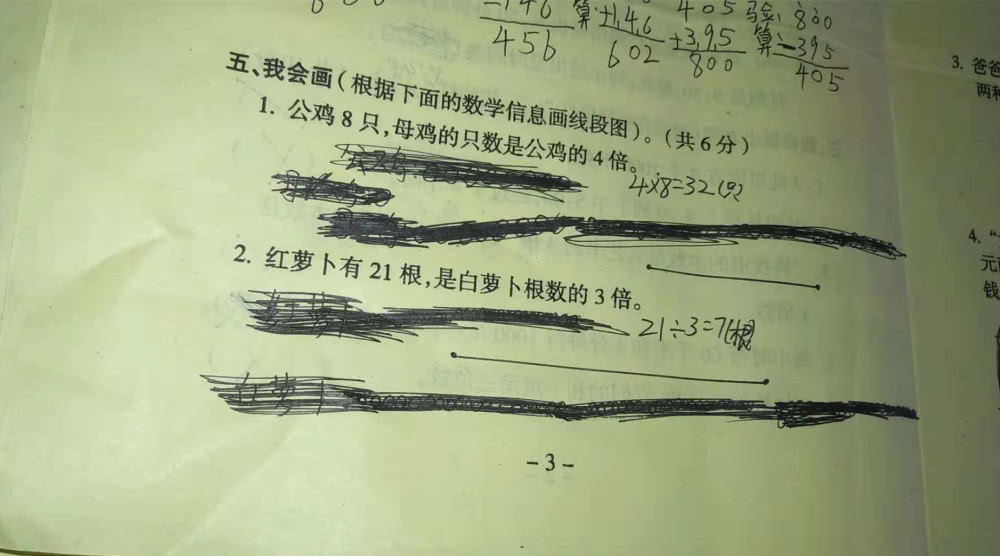 -146 算: +1,4,6 405 验: 800
456 602 +3,9,5 算: -395
800 405
五、我会画(根据下面的数学信息画线段图)。(共6分)
1. 公鸡8只,母鸡的只数是公鸡的4倍。
4×8=32(只)
2. 红萝卜有21根,是白萝卜根数的3倍。
21÷3=7(根)
白萝卜
-3-
3. 爸爸
两种
4. "
元
钱